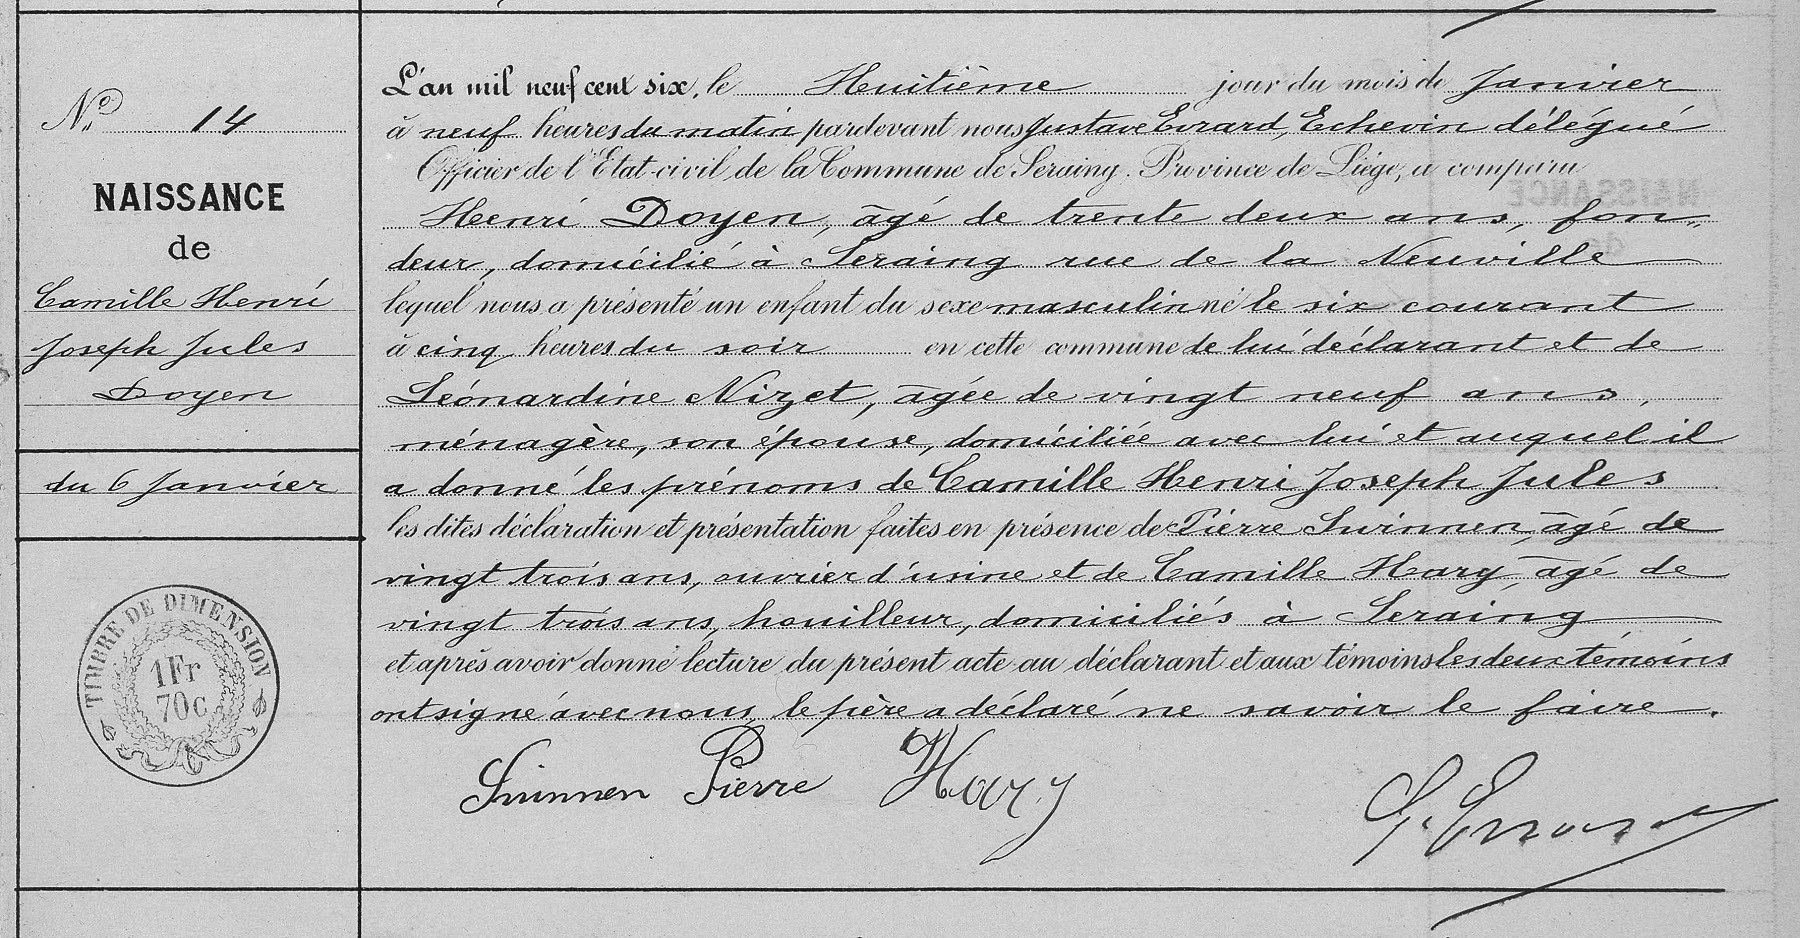 N° 14
NAISSANCE
de
Camille Henri
Joseph Jules
Doyen
du 6 Janvier
TIMBRE DE DIMENSION
1Fr
70c
L'an mil neuf cent six, le Huitième jour du mois de Janvier
à neuf heures du matin pardevant nous Gustave Evrard, Echevin délégué
Officier de l'Etat-civil de la Commune de Seraing, Province de Liége, a comparu
Henri Doyen, âgé de trente deux ans, fon-
deur, domicilié à Seraing rue de la Neuville
lequel nous a présenté un enfant du sexe masculin né le six courant
à cinq heures du soir en cette commune de lui déclarant et de
Léonardine Nizet, âgée de vingt neuf ans,
ménagère, son épouse, domiciliée avec lui et auquel il
a donné les prénoms de Camille Henri Joseph Jules
les dites déclaration et présentation faites en présence de Pierre Swinnen, âgé de
vingt trois ans, ouvrier d'usine et de Camille Hary, âgé de
vingt trois ans, houilleur, domiciliés à Seraing
et après avoir donné lecture du présent acte au déclarant et aux témoins les deux témoins
ont signé avec nous, le père a déclaré ne savoir le faire.
Swinnen Pierre Hary G. Evrard